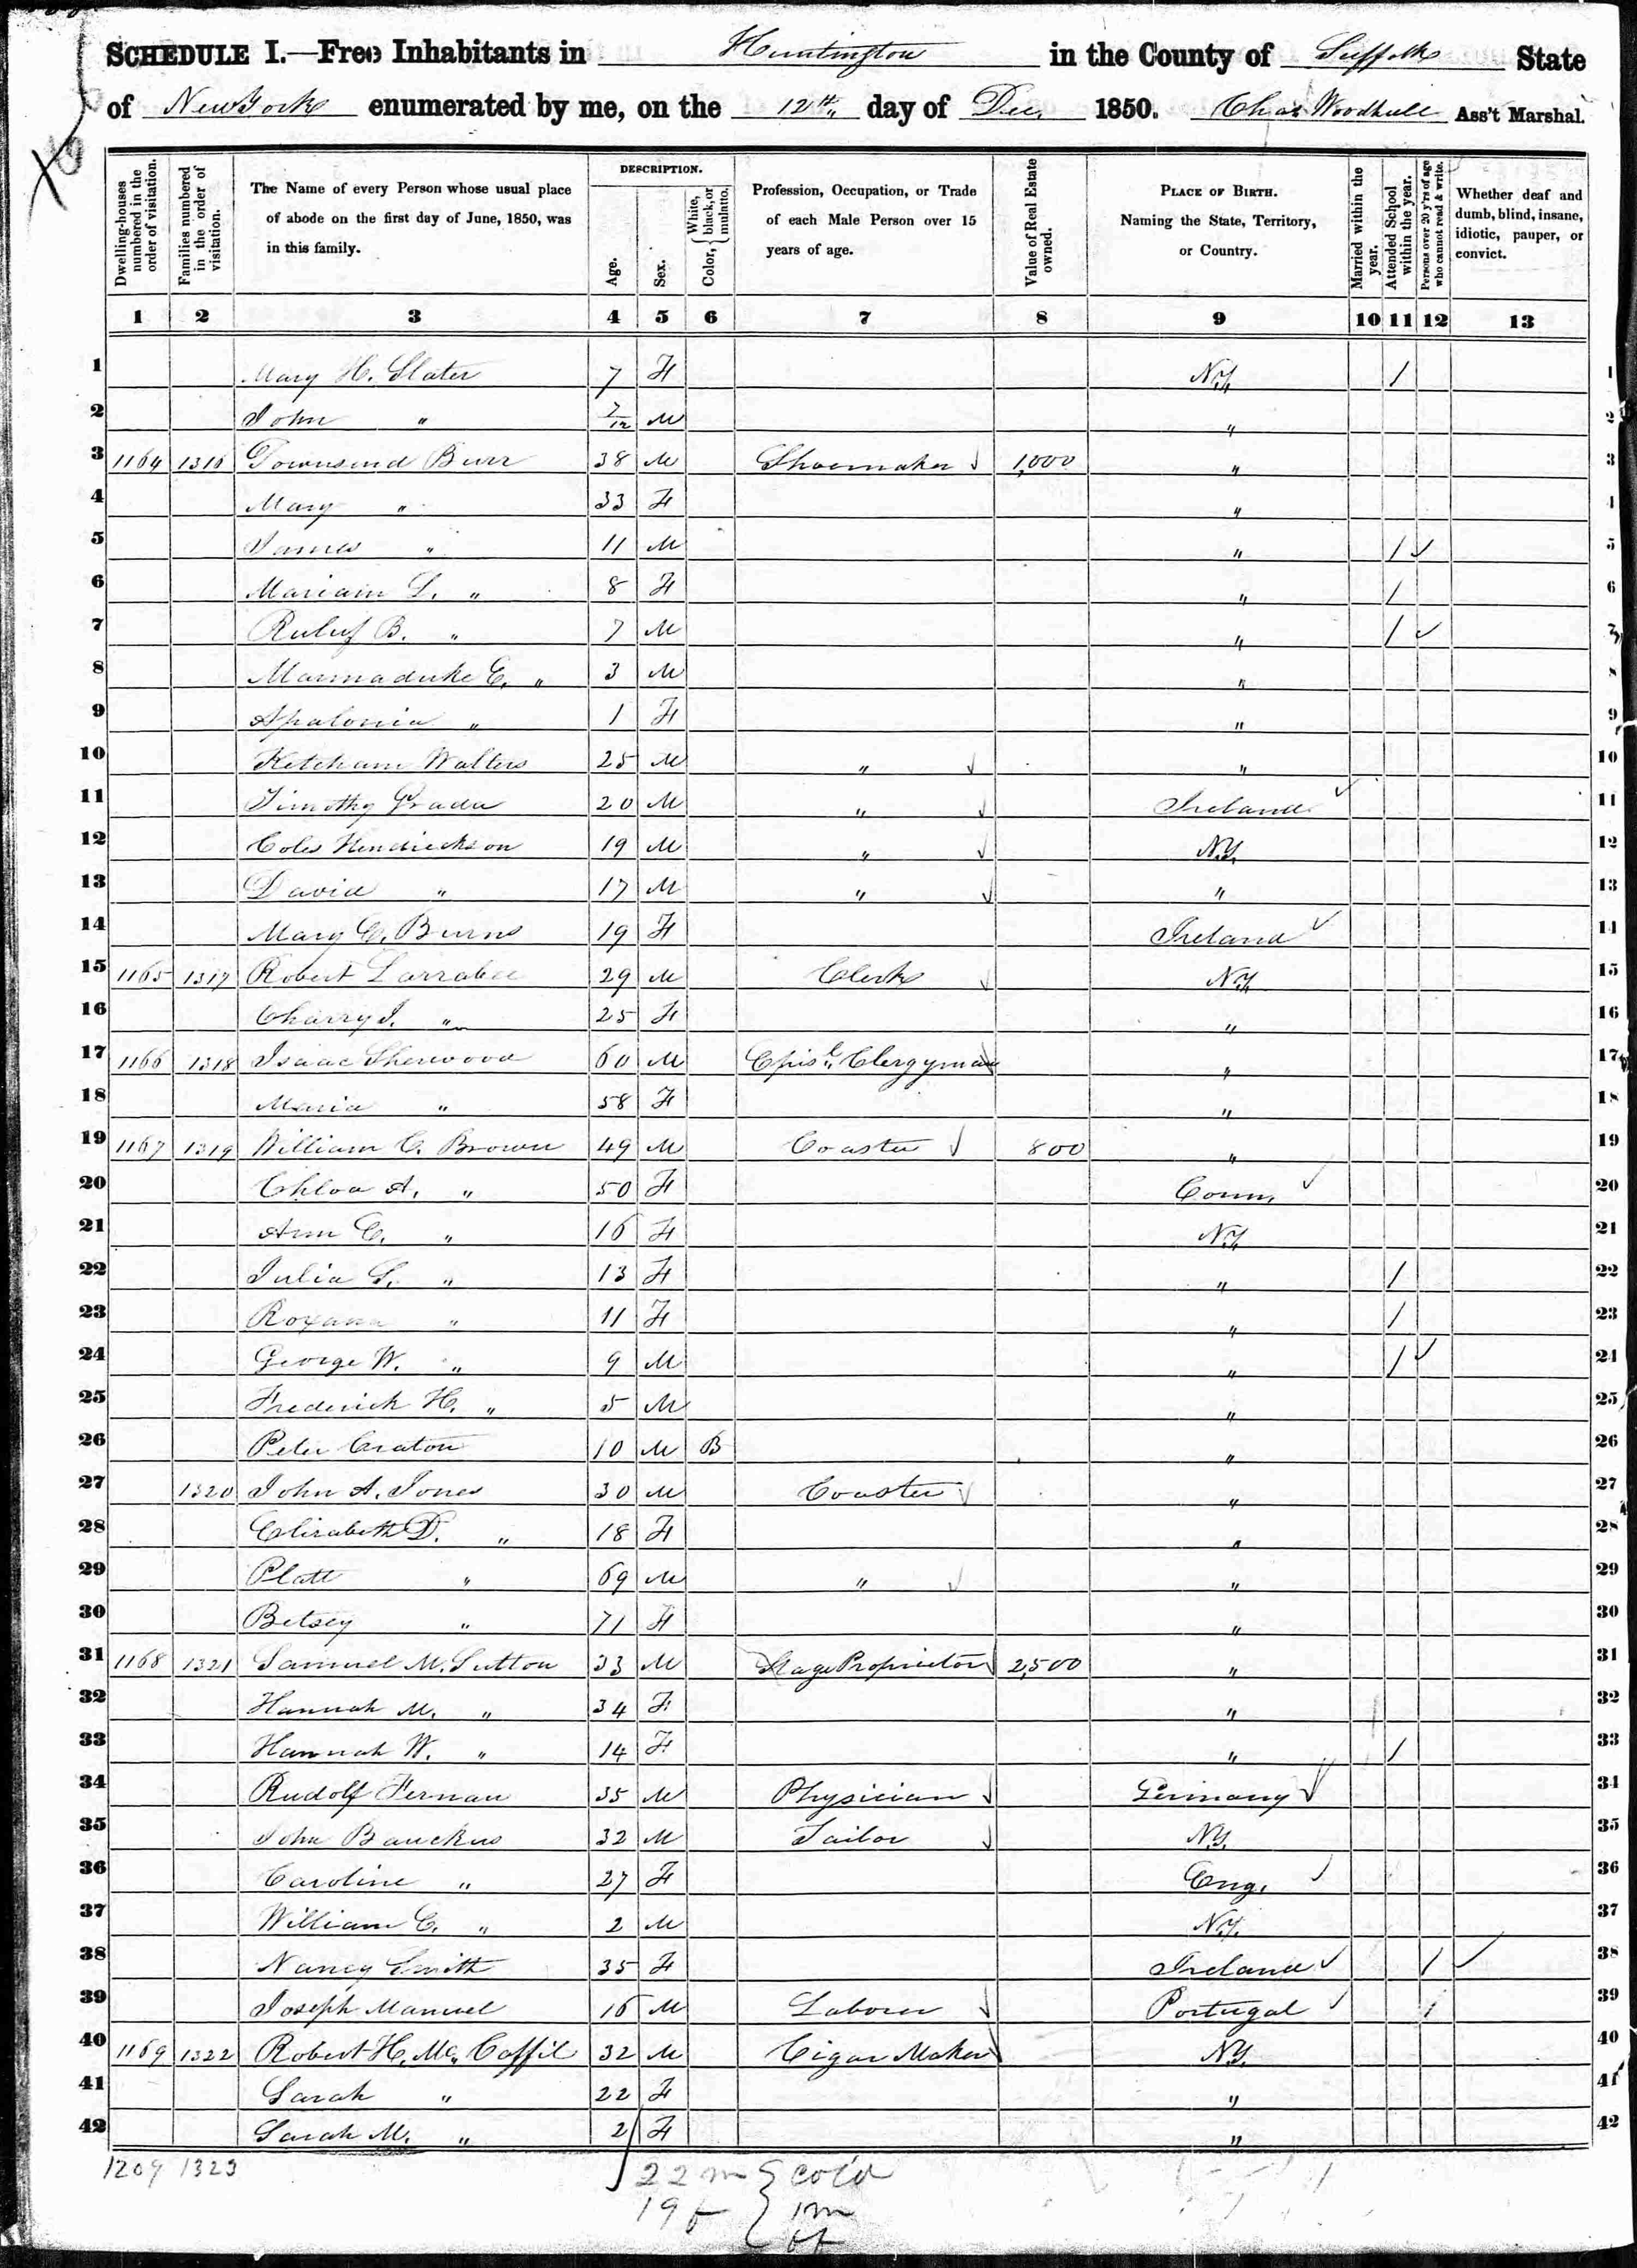 SCHEDULE I.—Free Inhabitants in Huntington in the County of Suffolk State
of New York enumerated by me, on the 12th day of Dec. 1850. Chas Woodhull Ass't Marshal.
Dwelling-houses numbered in the order of visitation.
Families numbered in the order of visitation.
The Name of every Person whose usual place of abode on the first day of June, 1850, was in this family.
DESCRIPTION.
Age.
Sex.
Color, { White, black, or mulatto.
Profession, Occupation, or Trade of each Male Person over 15 years of age.
Value of Real Estate owned.
PLACE OF BIRTH. Naming the State, Territory, or Country.
Married within the year.
Attended School within the year.
Persons over 20 y'rs of age who cannot read & write.
Whether deaf and dumb, blind, insane, idiotic, pauper, or convict.
1 2 3 4 5 6 7 8 9 10 11 12 13
1 Mary H. Slater 7 F N.Y. / 1
2 John " 7/12 M " 2
3 1164 1316 Townsend Burr 38 M Shoemaker ✓ 1,000 " 3
4 Mary " 33 F " 4
5 James " 11 M " / ✓ 5
6 Mariam L. " 8 F " / 6
7 Ruluf B. " 7 M " / ✓ 7
8 Marmaduke E. " 3 M " 8
9 Apalonia " 1 F " 9
10 Ketcham Walters 25 M " ✓ " 10
11 Timothy 20 M " ✓ Ireland ✓ 11
12 Coles Hendrickson 19 M " ✓ N.Y. 12
13 David " 17 M " ✓ " 13
14 Mary C. Burns 19 F Ireland ✓ 14
15 1165 1317 Robert Larrabee 29 M Clerk ✓ N.Y. 15
16 Charry J. " 25 F " 16
17 1166 1318 Isaac Sherwood 60 M Episl. Clergyman " 17
18 Maria " 58 F " 18
19 1167 1319 William C. Brown 49 M Coaster ✓ 800 " 19
20 Chloa A. " 50 F Conn. ✓ 20
21 Ann C. " 16 F N.Y. 21
22 Julia S. " 13 F " / 22
23 Roxana " 11 F " / 23
24 George W. " 9 M " / ✓ 24
25 Frederick H. " 5 M " 25
26 Peter Craton 10 M B " 26
27 1320 John A. Jones 30 M Coaster ✓ " 27
28 Elizabeth D. " 18 F " 28
29 Platt " 69 M " ✓ " 29
30 Betsey " 71 F " 30
31 1168 1321 Samuel M. Sutton 33 M Stage Proprietor 2,500 " 31
32 Hannah M. " 34 F " 32
33 Hannah W. " 14 F " / 33
34 Rudolf Fernau 35 M Physician ✓ Germany ✓ 34
35 John Bauckus 32 M Tailor ✓ N.Y. 35
36 Caroline " 27 F Eng. ✓ 36
37 William C. " 2 M N.Y. 37
38 Nancy Smith 35 F Ireland ✓ / ✓ 38
39 Joseph Manuel 16 M Laborer ✓ Portugal ✓ / 39
40 1169 1322 Robert H. Mc. Coffil 32 M Cigar Maker N.Y. 40
41 Sarah " 22 F " 41
42 Sarah M. " 2 F " 42
1209 1323
22 m } cold
19 f } 1m